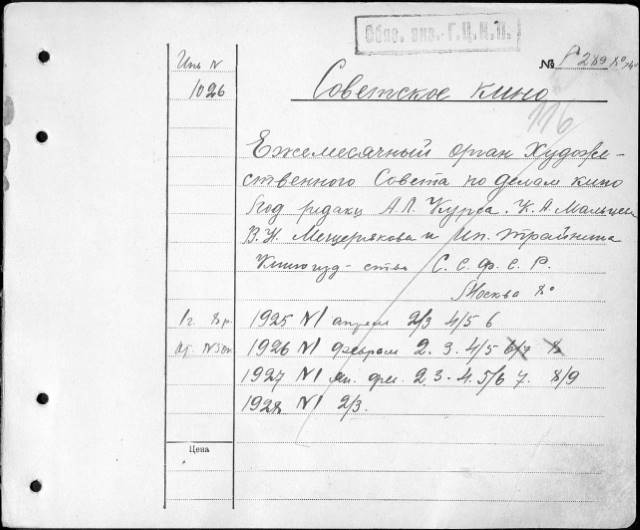 Обяз. экз. Г.Ц.К.П.
Инв N
1026
№ Р 289
Советское кино
116
Ежемесячный орган Художе-
ственного Совета по делам кино
Под редакц А.Л. Курса. К. А. Мальцева
В. Н. Мещерякова и Ил. Трайнина
Киноизд-ство С.С.Ф.С.Р.
Москва 8°
1925 N1 апрель 2/3 4/5 6
1926 N1 февраль 2. 3. 4/5 6/7 8
1927 N1 2. 3. 4. 5/6 7. 8/9
1928 N1 2/3.
Цена